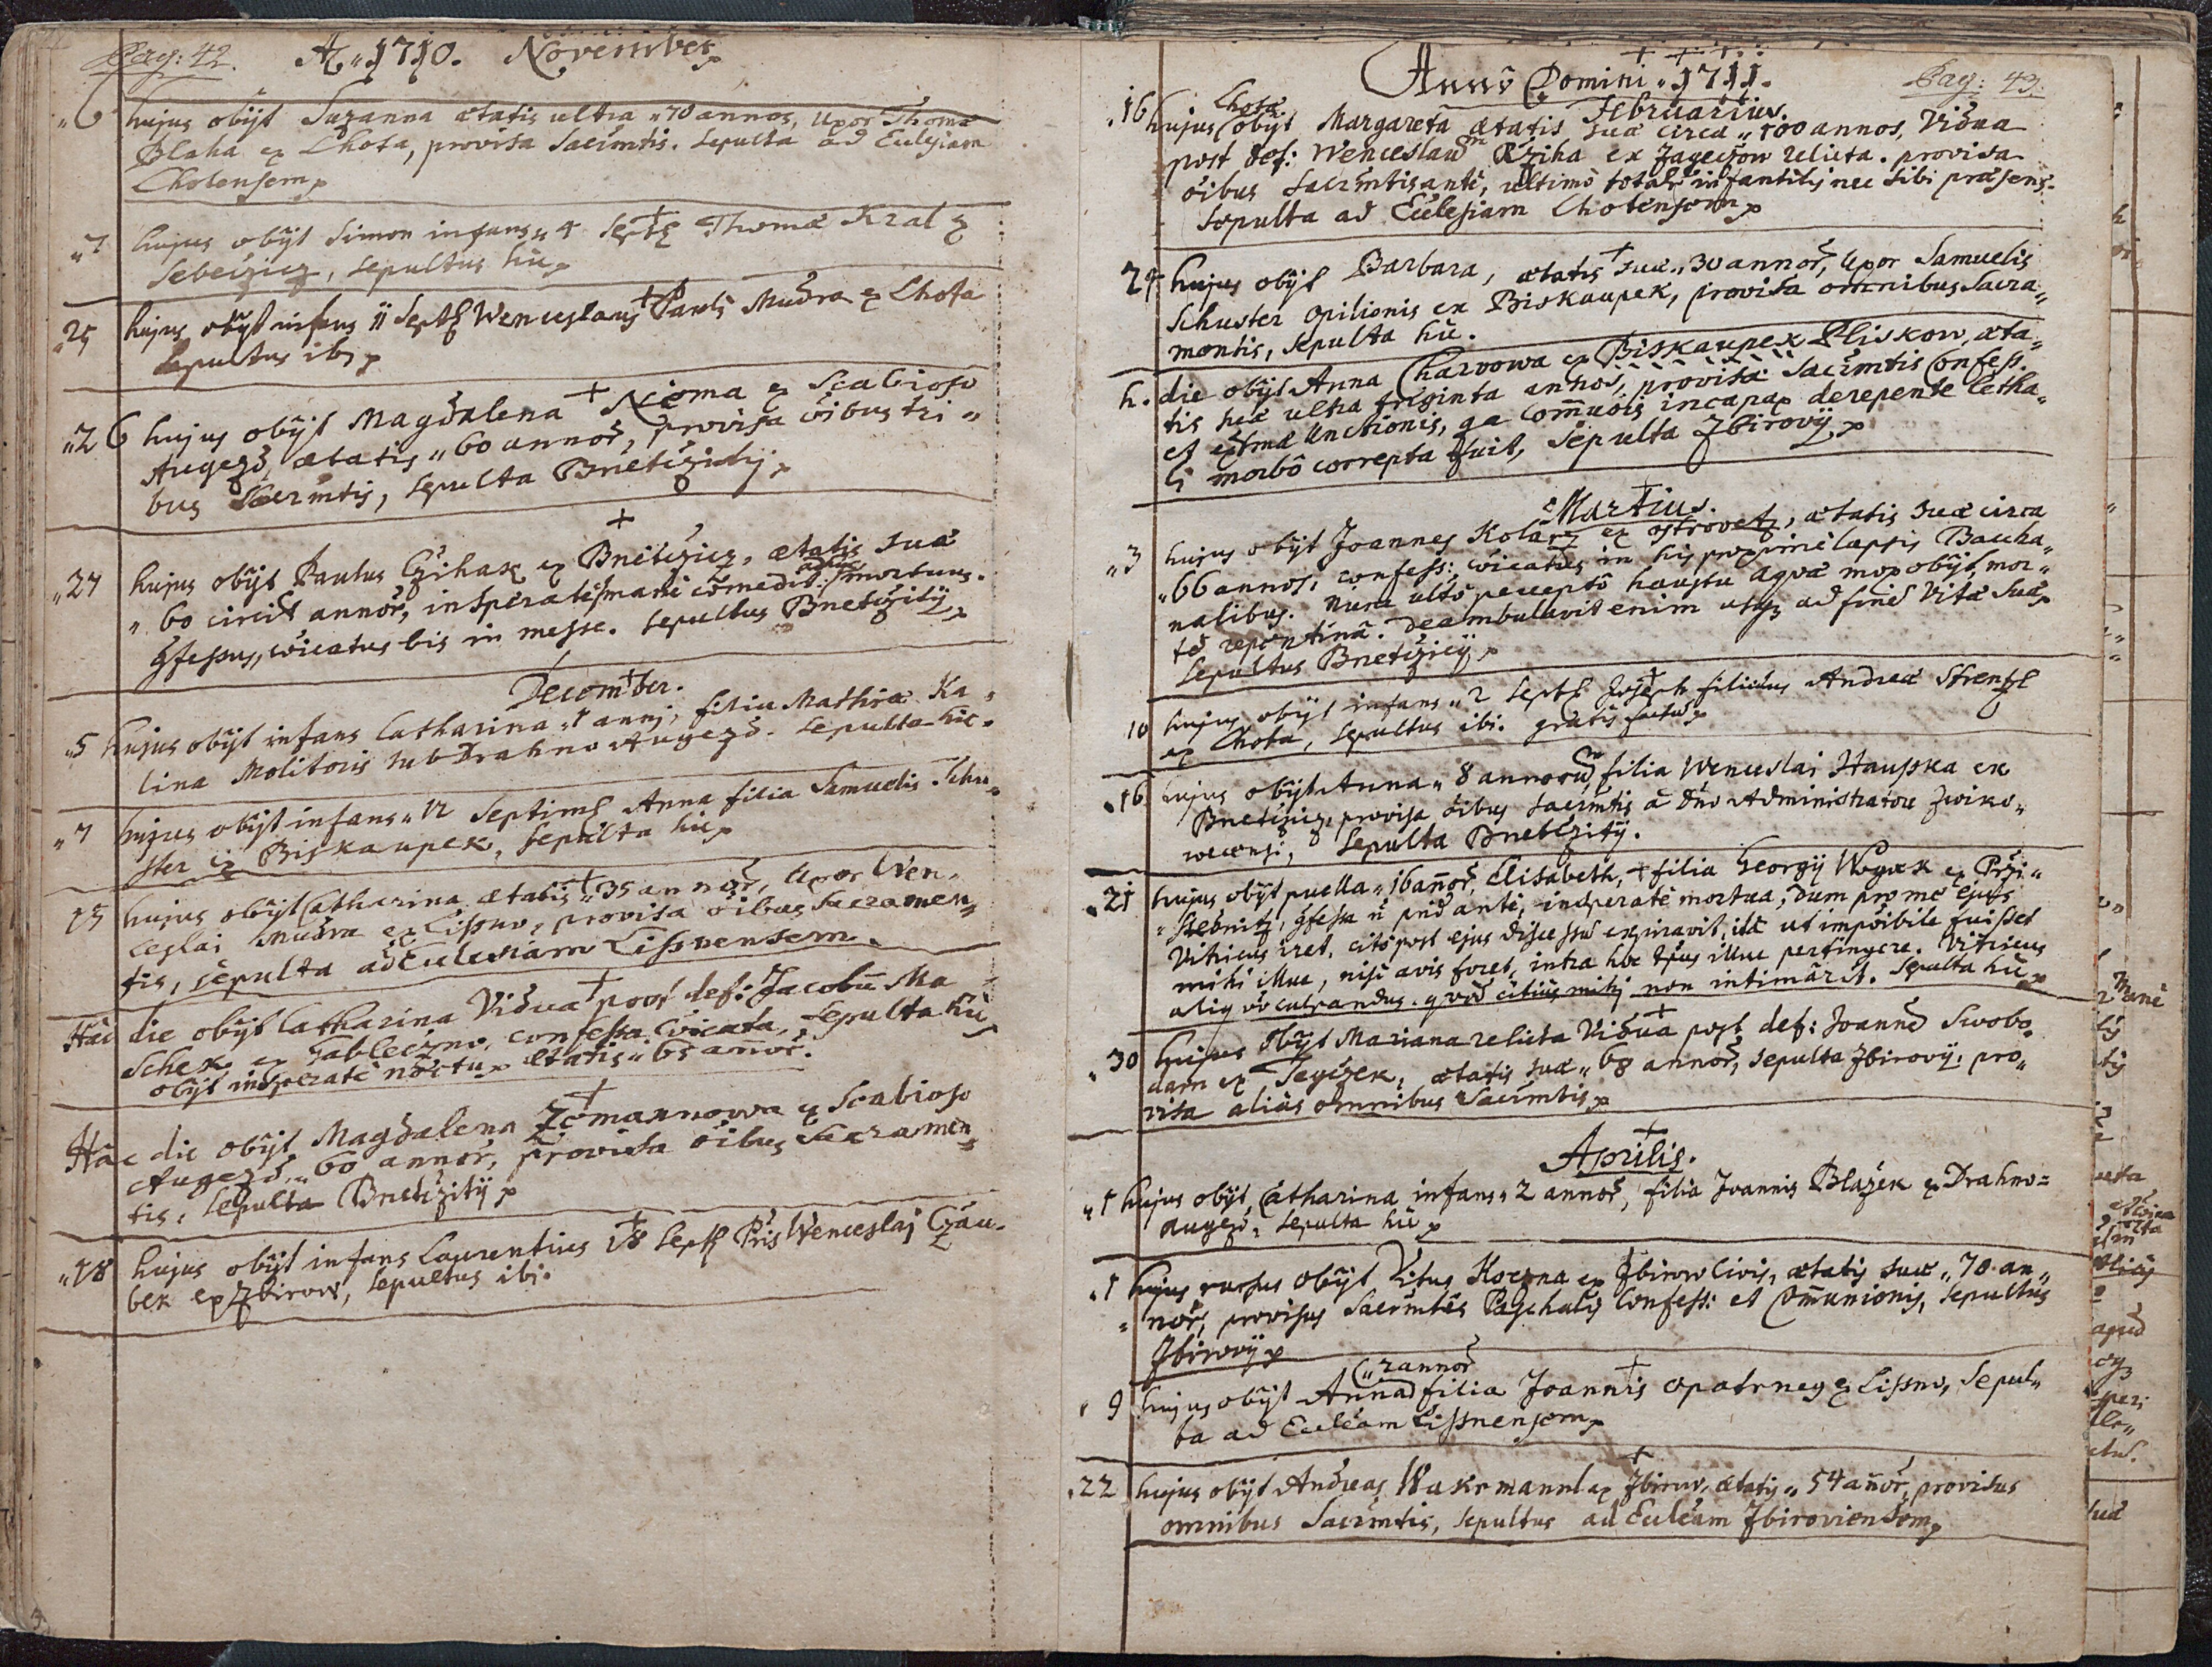 Pag: 42. Aõ 1710. November
6 hujus obijt Suzanna ætatis ultra 70 annos, Uxor Thomæ
Blaha ex Lhota, provisa Sacrmtis. Sepulta ad Ecclesiam
Lhotensem
7 hujus obijt Simon infans 4 Sept Thomæ Kral ex
Sebeczicz, sepultus hic
25 hujus obijt infans 11 Sept Wenceslaus Pauli Mudra ex Lhota
Sepultus ibi
26 hujus obijt Magdalena Nigma ex Scabioso
Augezd, ætatis 60 annoř, provisa õibus tri
bus Sacrmtis, Sepulta
27 hujus obijt Paulus Czihak ex Bneticzicz, ætatis suæ
60 circit annoř, insperate mane comedit mortuus.
gfessus, cõicatus bis in messe. Sepultus Bneticzitÿ
December.
5 hujus obijt infans Catharina 1 annj, filia Mathiæ Ka
lina Molitoris sub Drahno Augezd. Sepulta hic.
7 hujus obijt infans 12 Septim Anna filia Samuelis Schu
ster ex Biskaupek, Sepulta hic
15 hujus obijt Catharina ætatis 35 annoř, Uxor Wen
ceslai Mudra ex Lissno, provisa õibus Sacramen
tis, sepulta ad Ecclesiam Lissnensem.
Hâc die obijt Catharina Vidua post def: Jacobũ Ma
Schek ex Jableczno, confessa Cõicata, Sepulta hic
obijt insperatè noctu ætatis 65 añoř.
Hâc die obijt Magdalena Zemannowa ex Scabioso
Augezd 60 annoř, provisa õibus Sacramen
tis, Sepulta Bneticzitÿ
18 hujus obijt infans Laurentius 18 Sept Pris Wenceslaj Czau
bek ex Zbirow, Sepultus ibi.
Anno Domini 1711. Pag: 43.
Februarius.
Lhota
16 hujus obijt Margareta ætatis suæ circa 100 annos, Vidua
post def: Wenceslaum Rziha ex Jageczow relicta. provisa
õibus Sacrmtis ante, ultimò infantilis nec sibi præsens.
Sepulta ad Ecclesiam Lhotensem
24 hujus obijt Barbara, ætatis suæ 30 annoř, Uxor Samuelis
Schuster opilionis ex Biskaupek, provisa omnibus Sacra
mentis, Sepulta hic.
h. die obijt Anna Charvowa ex Biskaupek Pliskow, æta
tis suæ ultra triginta annos, provisa Sacrmtis Confess.
et extrmæ Unctionis, qa Comuõis incapax derepente letha
li morbô correpta fuit, Sepulta Zbirovÿ
Martius.
3 hujus obijt Joannes Kolarz ex Ostrovetz, ætatis suæ circa
66 annos, confess: cõicatus in his proxime lapsis Baccha
nalibus. Nunc ultò percepto haustu aqvæ mox obijt, mor
te repentinâ. Deambulavit enim usq ad finem vitæ Suæ
Sepultus Bneticzicÿ
10 hujus obijt infans 2 Sept Joseph filiolus Andreæ Strentzl
ex Lhota, sepultus ibi. gratis factum
16 hujus obijt Anna 8 annorum filia Wenceslai Hauska ex
Bneticzicz, provisa õibus Sacrmtis â Dno Administratore Zwiko
wecensi, Sepulta Bneticzitÿ.
21 hujus obijt puella 16 añoř, Elisabeth, filia Georgÿ Woyak ex Przi
stednitz, gfessa ũ prid antè, insperatè mortua, dum pro me ejus
Vitricus iret, citò post ejus discessum expiravit, ità ut impõibile fuisset
mihi illuc, nisi avis foret, intra hoc tpus illuc pertingere. Vitricus
aliq võ culpandus. qvòd citius mihj non intimârit. Sepulta hic
30 hujus obijt Mariana relicta Vidua post def: Joannẽ Swobo
dam ex Teyczek, ætatis suæ 68 annoř, Sepulta Zbirovÿ, pro
visa aliàs omnibus Sacrmtis
Aprilis.
1 hujus obijt Catharina infans 2 annoř, filia Joannis Blazek ex Drahno=
augezd, Sepulta hic
1 hujus rursus obijt Vitus Koczna ex Zbirow Civis, ætatis suæ 70 an
noř, provisus Sacrmtis Paschalis Confess: et Comunionis, Sepultus
Zbirovÿ
2 annoř
9 hujus obijt Anna filia Joannis Opatrneg ex Lissno, Sepul
ta ad Eccleam Lissnensem
22 hujus obijt Andreas Wakrmannl ex Zbirow, ætatis 54 añoř, provisus
omnibus Sacrmtis, Sepultus ad Eccleam Zbiroviensem